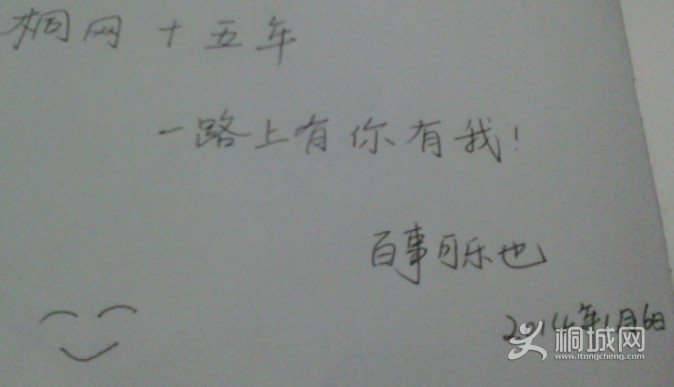 桐网十五年
一路上有你有我!
百事可乐也
2014年1月6日
桐城网
www.itongcheng.com